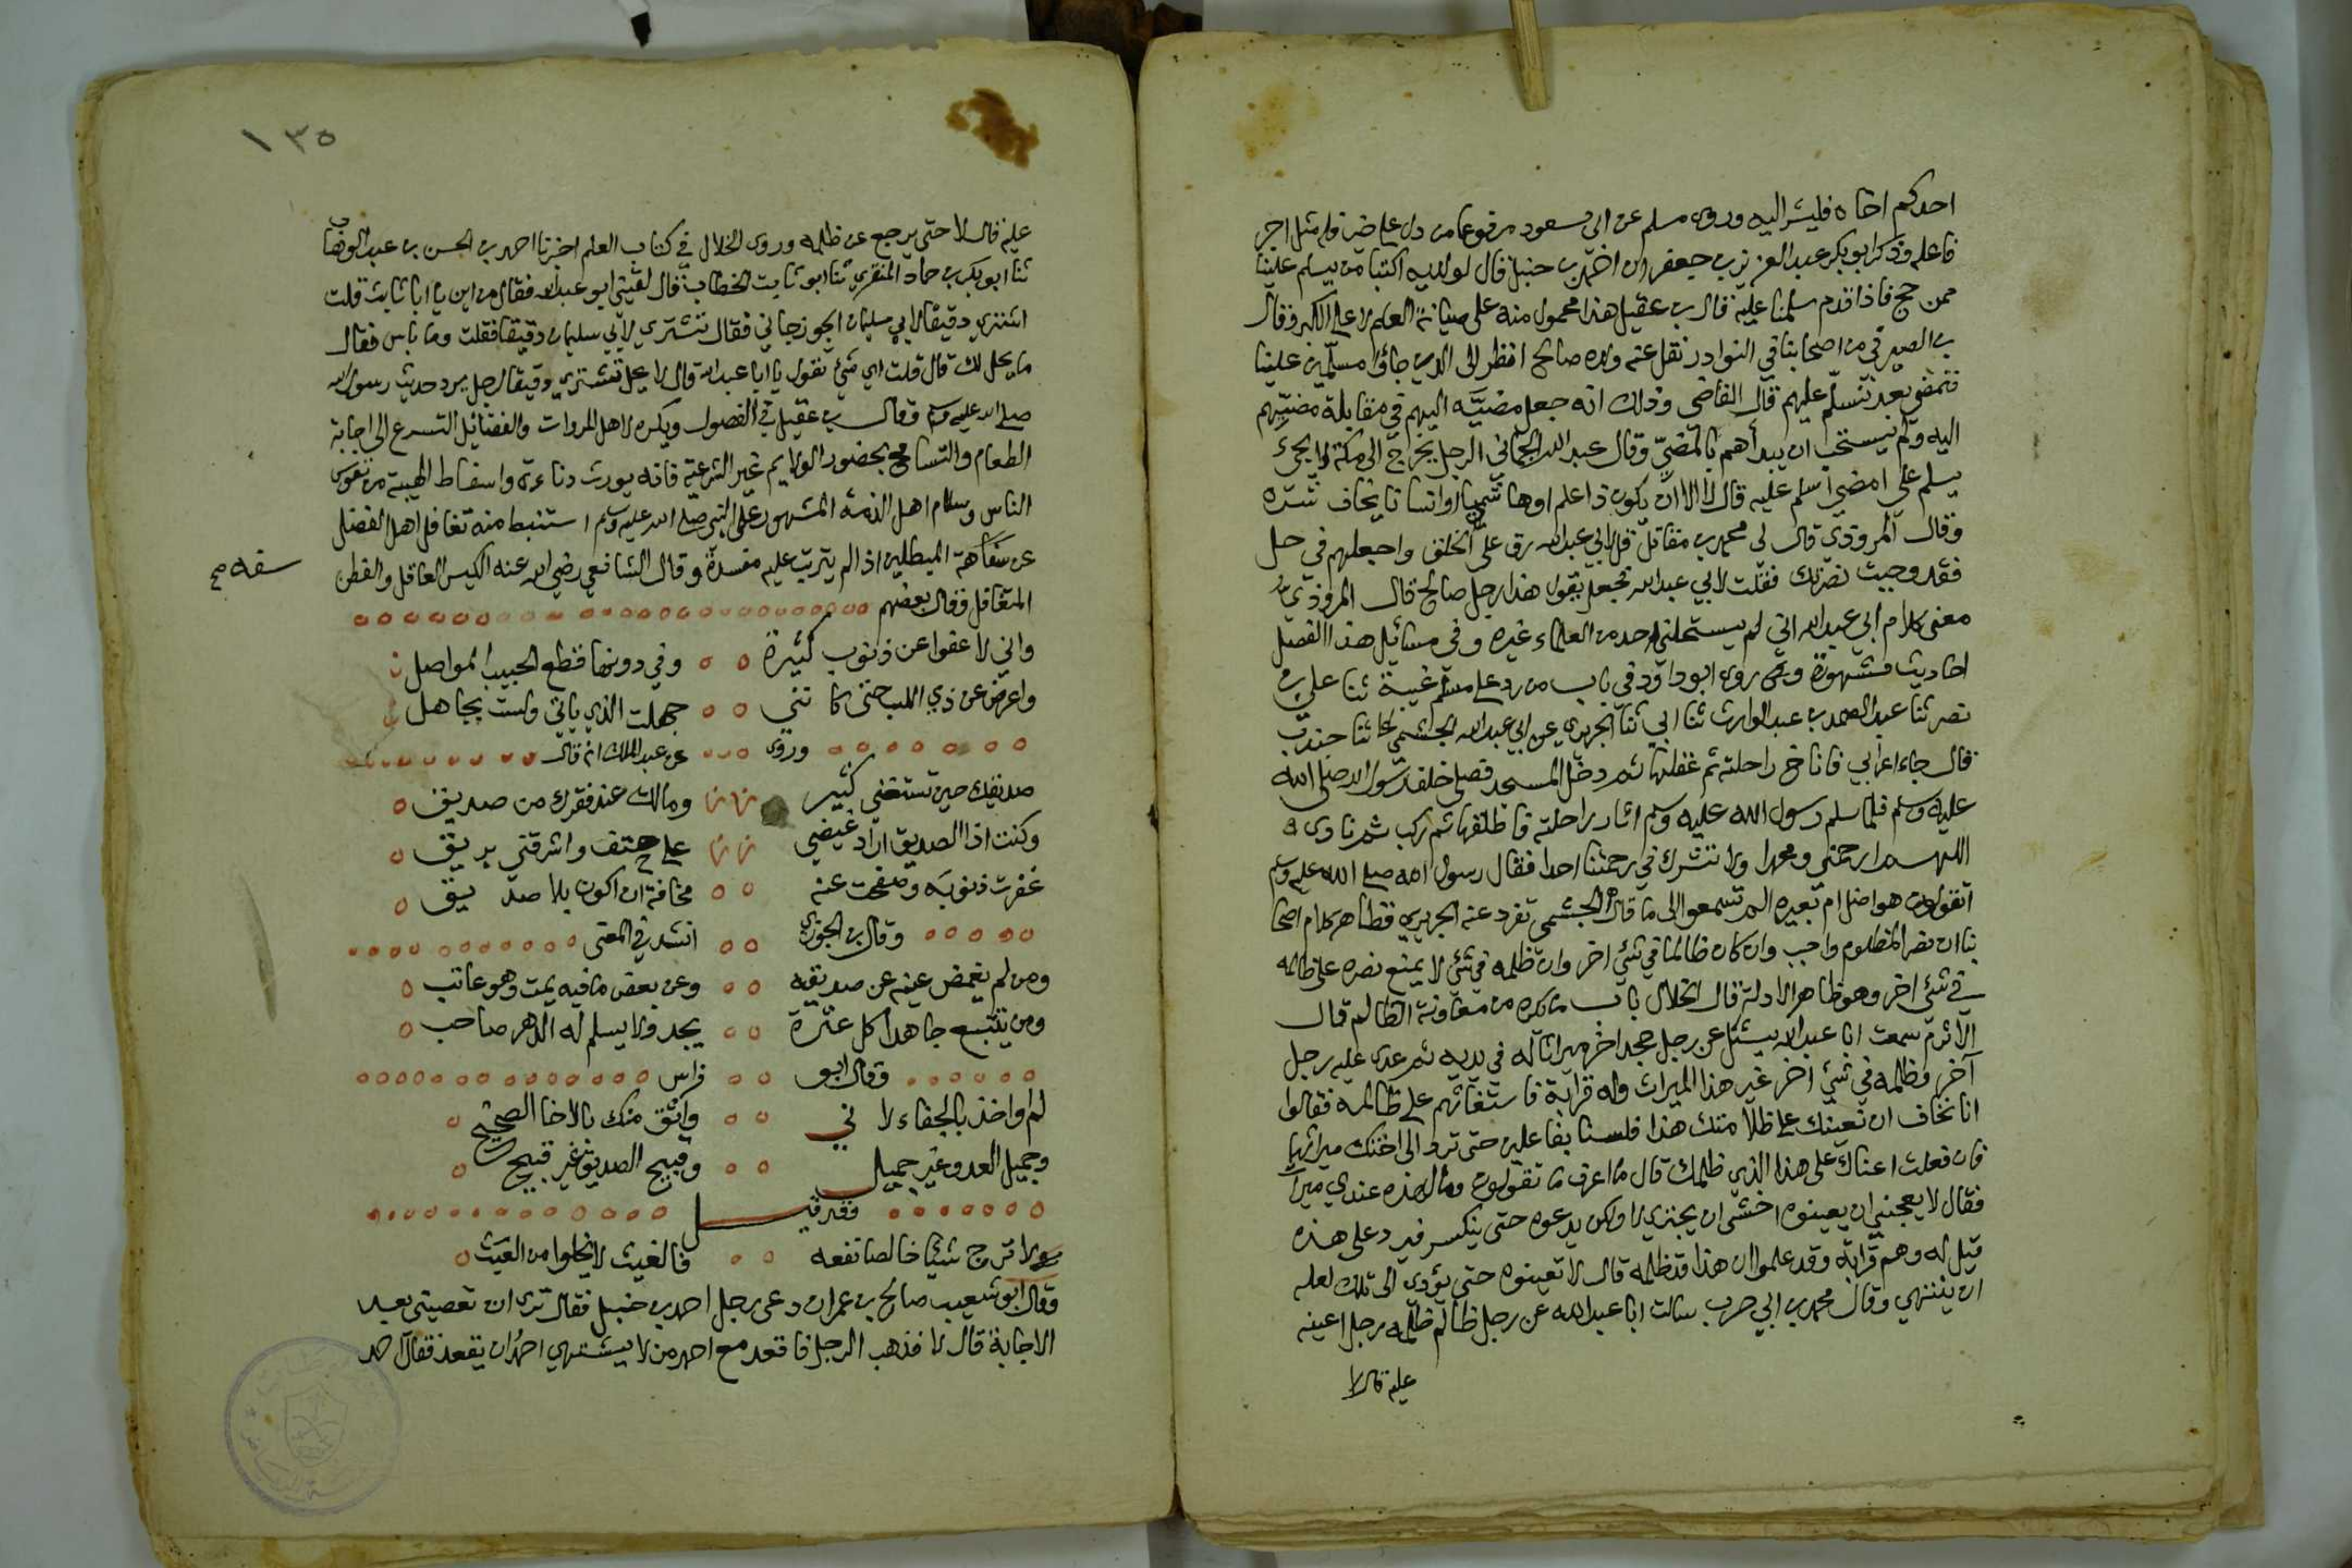 احدكم اخاه فليشر اليه وروى مسلم عن ابي مسعود مرفوعا من دل على خير فله مثل اجر
فاعله وذكر ابو بكر عبد العزيز بن جعفر ان احمد بن حنبل قال لولديه اكتبا من يسلم علينا
ممن حج فاذا قدم سلمنا عليه قال بن عقيل هذا محمول منه على صيانة العلم لا على الكبر وقال
بن الصيرفي من اصحابنا في النوادر نقل عنه ولده صالح انظر الى الذين جاؤا مسلمين علينا
فنمضي بعد نسلم عليهم قال القاضي وذلك انه جعل مضيه اليهم في مقابلة مضيهم
اليه ولم يستحب ان يبدأهم بالمضي وقال عبد الله الرجل يخرج الى مكة لا يجئ
يسلم علي امضي اسلم عليه قال لا الا ان يكون ذا علم او هاشميا او انسانا يخاف شره
وقال المروذي قال لي محمد بن مقاتل قل لابي عبد الله رق على الخلق واجعلهم في حل
فقد وجبت نصرتك فقلت لابي عبد الله فجعل يقول هذا رجل صالح قال المروذي
معنى كلام ابي عبد الله اني لم يستحلني احد من العلماء غيره وفي مسائل هذا الفصل
احاديث مشهورة وقد روى ابو داود في باب من رد على مسلم غيبة ثنا علي بن
نصر ثنا عبد الصمد بن عبد الوارث ثنا ابي ثنا الجريري عن ابي عبد الله الجشمي ثنا جندب
قال جاء اعرابي فاناخ راحلته ثم عقلها ثم دخل المسجد فصلى خلف رسول الله صلى الله
عليه وسلم فلما سلم رسول الله عليه وسلم اثار راحلته فاطلقها ثم ركب ثم نادى
اللهم ارحمني ومحمدا ولا تشرك في رحمتنا احدا فقال رسول الله صلى الله عليه وسلم
اتقولون هو اضل ام بعيره الم تسمعوا الى ما قال الجشمي تفرد عنه الجريري فظاهر كلام اصحا
بنا ان نصر المظلوم واجب وان كان ظالما في شئ اخر وان ظلمه في شئ لا يمنع نصره على ظالمه
في شئ اخر وهو ظاهر الادلة قال الخلال باب ما يكره من معاونة الظالم قال
الاثرم سمعت ابا عبد الله يسئل عن رجل جحد اخر ميراثا له في يديه ثم عدى عليه رجل
آخر فظلمه في شئ اخر غير هذا الميراث وله قرابة فاستغاثهم على ظالمه فقالوا
انا نخاف ان نعينك على ظلامتك هذا فلسنا بفاعلين حتى ترد الى اختك ميراثها
فان فعلت اعناك على هذا الذي ظلمك قال ما اعرف ما تقولون ومال هذه عندي ميراث
فقال لا يعجبني ان يعينوه اخشى ان يجتري لا ولكن يدعوه حتى ينكسر فيرد على هذه
قيل له وهم قرابة وقد علموا ان هذا قد ظلمه قال لا تعينوه حتى يؤدي الى تلك لعله
ان ينتهي وقال محمد بن ابي حرب سالت ابا عبد الله عن رجل ظالم ظلمه رجل اعينه
عليه قال لا
١٣٥
عليه قال لا حتى يرجع عن ظلمه وروى الخلال في كتاب العلم اخبرنا احمد بن الحسن بن عبد الوهاب
ثنا ابو بكر بن حماد المنقري ثنا ابو ثابت الخطاب قال لقيني ابو عبد الله فقال من اين يا ابا ثابت قلت
اشتري دقيقا لابي سليمان الجوزجاني فقال تشتري لابي سليمان دقيقا فقلت وما باس فقال
ما يحل لك قال قلت اي شئ تقول يا ابا عبد الله قال لا يحل تشتري دقيقا لرجل يرد حديث رسول الله
صلى الله عليه وسلم وقال بن عقيل في الفصول ويكره لاهل المروات والفضائل التسرع الى اجابة
الطعام والتسامح بحضور الولايم غير الشرعية فانه يورث دناءة واسقاط الهيبة من نفوس
الناس وسلام اهل الذمة المشهور على النبي صلى الله عليه وسلم استنبط منه تغافل اهل الفضل
عن سفاهة المبطلين اذا لم يترتب عليه مفسدة وقال الشافعي رضي الله عنه الكيس العاقل والفطن
سفه صح
المتغافل وقال بعضهم
واني لاعفوا عن ذنوب كثيرة وفي دونها قطع الحبيب المواصل
واعرض عن ذي اللب حتى كانني جهلت الذي ياتي ولست بجاهل
وروى عن عبد الملك انه قال
صديقك حين تستغني كثير ومالك عند فقرك من صديق
وكنت اذا الصديق اراد غيضي على حنف واشرقني بريق
غفرت ذنوبه وصفحت عنه مخافة ان اكون بلا صديق
وقال بن الجوزي انشد في المعنى
ومن لم يغمض عينه عن صديقه وعن بعض ما فيه يمت وهو عاتب
ومن يتتبع جاهدا كل عثرة يجد ولا يسلم له الدهر صاحب
وقال ابو فراس
لم اواخذ بالجفاء لاني واثق منك بالاخا الصحيح
وجميل العدو غير جميل وقبيح الصديق غير قبيح
فقد قيل
ولا ترج شيئا خالصا نفعه فالغيث لا يخلوا من العيث
وقال ابو شعيب صالح بن عمران دعى رجل احمد بن حنبل فقال ترى ان تعصيني بعد
الاجابة قال لا فذهب الرجل فاقعد مع احمد من لا يشتهي احمد ان يقعد فقال احمد